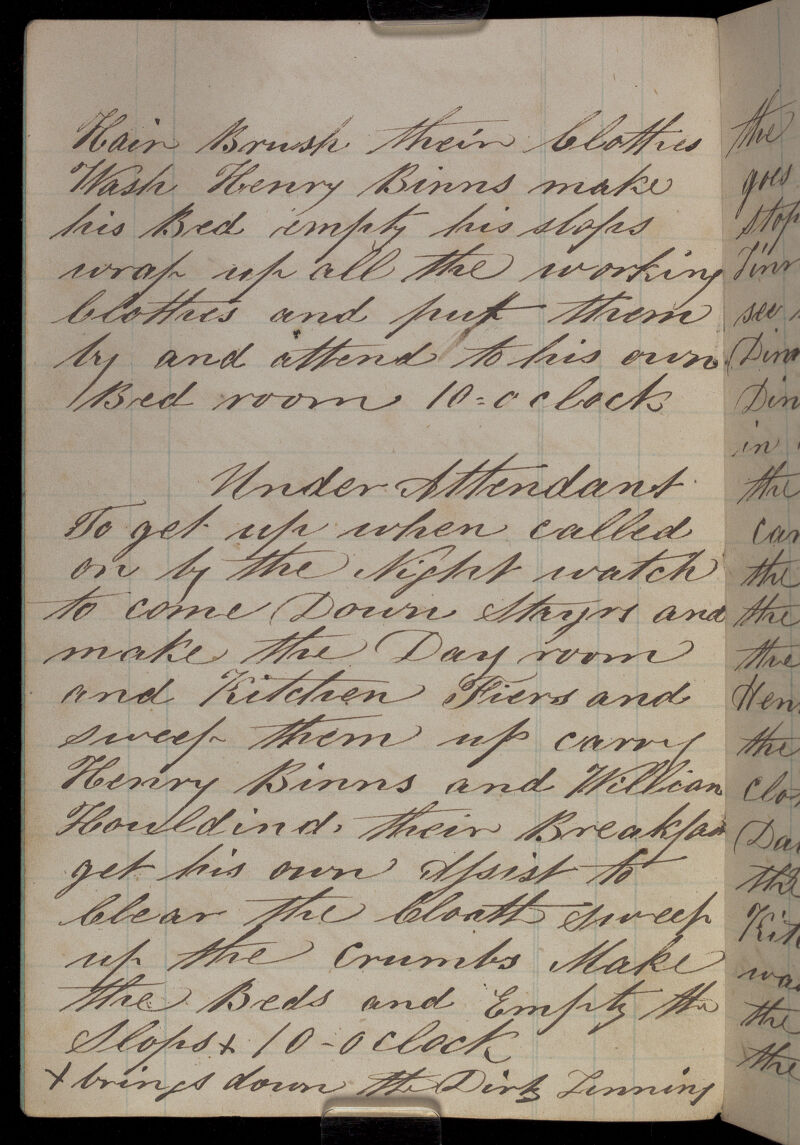 Hair Brush their Clothes
Wash Henry Binns make
his Bed empty his slops
wrap up all the working
Clothes and put them
by and attend to his own
Bed room 10=oclock
Under Attendant
To get up when called
on by the Night watch
to come Down Stayrs and
make the Day room
and Kitchen Fiers and
sweep them up carry
Henry Binns and William
Houldind their Breakfas
get his own Assist to
Clear the Cloath sweep
up the Crumbs Make
the Beds and Empty the
Slops + 10-oclock
+ brings down the Dirty Linning
the
goes
stop
see
Din
in
the
car
the
the
the
Hen
the
clo
Da
the
Kit
wa
the
the